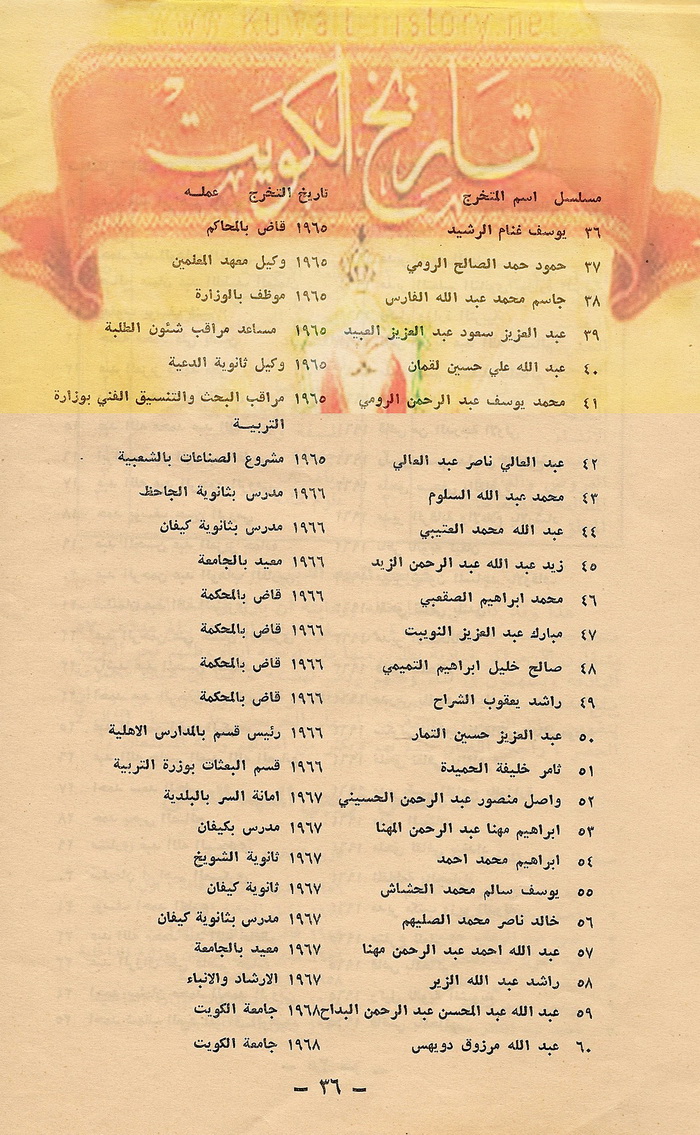 www.kuwait-history.net
تاريخ الكويت
مسلسل اسم المتخرج تاريخ التخرج عمله
٣٦ يوسف غنام الرشيد ١٩٦٥ قاض بالمحاكم
٣٧ حمود حمد الصالح الرومي ١٩٦٥ وكيل معهد المعلمين
٣٨ جاسم محمد عبد الله الفارس ١٩٦٥ موظف بالوزارة
٣٩ عبد العزيز سعود عبد العزيز العبيد ١٩٦٥ مساعد مراقب شئون الطلبة
٤٠ عبد الله علي حسين لقمان ١٩٦٥ وكيل ثانوية الدعية
٤١ محمد يوسف عبد الرحمن الرومي ١٩٦٥ مراقب البحث والتنسيق الفني بوزارة
التربيــة
٤٢ عبد العالي ناصر عبد العالي ١٩٦٥ مشروع الصناعات بالشعبية
٤٣ محمد عبد الله السلوم ١٩٦٦ مدرس بثانوية الجاحظ
٤٤ عبد الله محمد العتيبي ١٩٦٦ مدرس بثانوية كيفان
٤٥ زيد عبد الله عبد الرحمن الزيد ١٩٦٦ معيد بالجامعة
٤٦ محمد ابراهيم الصقعبي ١٩٦٦ قاض بالمحكمة
٤٧ مبارك عبد العزيز النويبت ١٩٦٦ قاض بالمحكمة
٤٨ صالح خليل ابراهيم التميمي ١٩٦٦ قاض بالمحكمة
٤٩ راشد يعقوب الشراح ١٩٦٦ قاض بالمحكمة
٥٠ عبد العزيز حسين التمار ١٩٦٦ رئيس قسم بالمدارس الاهلية
٥١ ثامر خليفة الحميدة ١٩٦٦ قسم البعثات بوزرة التربية
٥٢ واصل منصور عبد الرحمن الحسيني ١٩٦٧ امانة السر بالبلدية
٥٣ ابراهيم مهنا عبد الرحمن المهنا ١٩٦٧ مدرس بكيفان
٥٤ ابراهيم محمد احمد ١٩٦٧ ثانوية الشويخ
٥٥ يوسف سالم محمد الحشاش ١٩٦٧ ثانوية كيفان
٥٦ خالد ناصر محمد الصليهم ١٩٦٧ مدرس بثانوية كيفان
٥٧ عبد الله احمد عبد الرحمن مهنا ١٩٦٧ معيد بالجامعة
٥٨ راشد عبد الله الزير ١٩٦٧ الارشاد والانباء
٥٩ عبد الله عبد المحسن عبد الرحمن البداح ١٩٦٨ جامعة الكويت
٦٠ عبد الله مرزوق دويهس ١٩٦٨ جامعة الكويت
— ٣٦ —